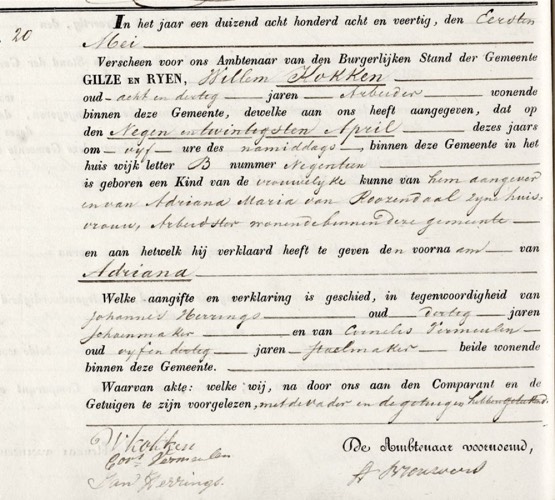 20
In het jaar een duizend acht honderd acht en veertig, den Eersten
Mei
Verscheen voor ons Ambtenaar van den Burgerlijken Stand der Gemeente
GILZE EN RYEN, Willem Kokken
oud acht en dertig jaren Arbeider wonende
binnen deze Gemeente, dewelke aan ons heeft aangegeven, dat op
den Negen en twintigsten April dezes jaars
om vyf ure des namiddags, binnen deze Gemeente in het
huis wijk letter B nummer Negentien
is geboren een Kind van de vrouwelyke kunne van hem aangever
en van Adriana Maria van Roozendaal zyne huis-
vrouw, Arbeidster wonende binnen deze gemeente
en aan hetwelk hij verklaard heeft te geven den voornaam van
Adriana
Welke aangifte en verklaring is geschied, in tegenwoordigheid van
Johannes Herrings oud dertig jaren
en van Cornelis Vermeulen
oud vyf en dertig jaren beide wonende
binnen deze Gemeente.
Waarvan akte: welke wij, na door ons aan den Comparant en de
Getuigen te zijn voorgelezen, met de vader en de getuigen hebben geteekend.
W kokken
Cors Vermeulen
De Ambtenaar voornoemd,
Jan Herrings.